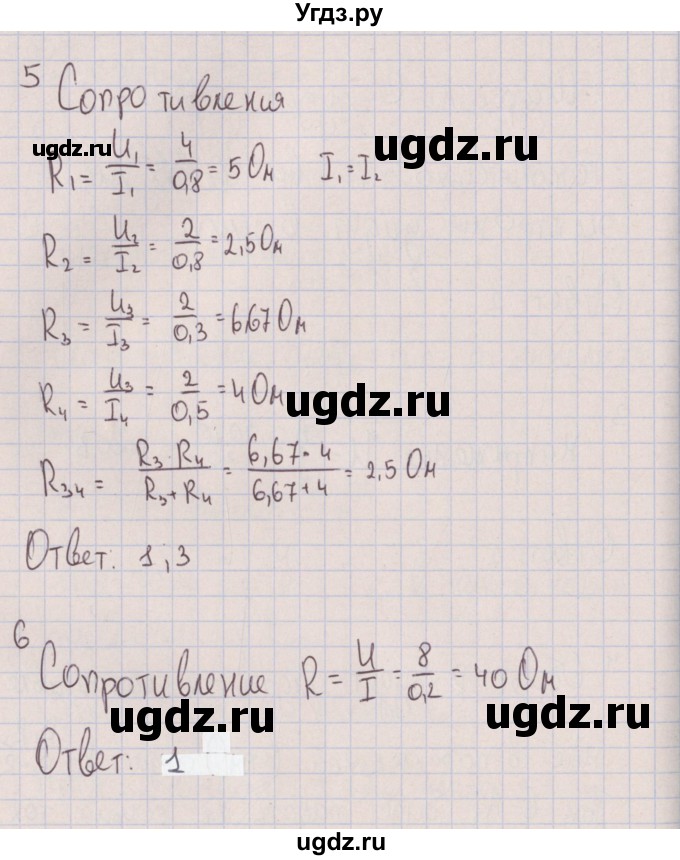 Угдз.ру
5 Сопротивления
ugdz.ru
ugdz.ru
R₁ = U₁/I₁ = 4/0,8 = 5 Ом I₁ = I₂
R₂ = U₂/I₂ = 2/0,8 = 2,5 Ом
R₃ = U₃/I₃ = 2/0,3 = 6,67 Ом
R₄ = U₃/I₄ = 2/0,5 = 4 Ом
ugdz.ru
R₃₄ = R₃·R₄/R₃+R₄ = 6,67·4/6,67+4 = 2,5 Ом
Ответ: 1,3
6
Сопротивление R = U/I = 8/0,2 = 40 Ом
ugdz.ru
ugdz.ru
Ответ: 1
ugdz.ru